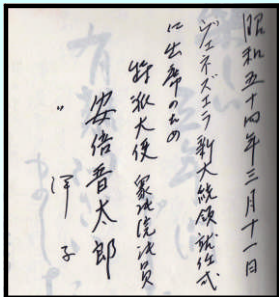 昭和五十四年三月十一日
ヴェネズエラ新大統領就任式
に出席のため
特派大使 衆議院議員
安倍晋太郎
〃 洋子